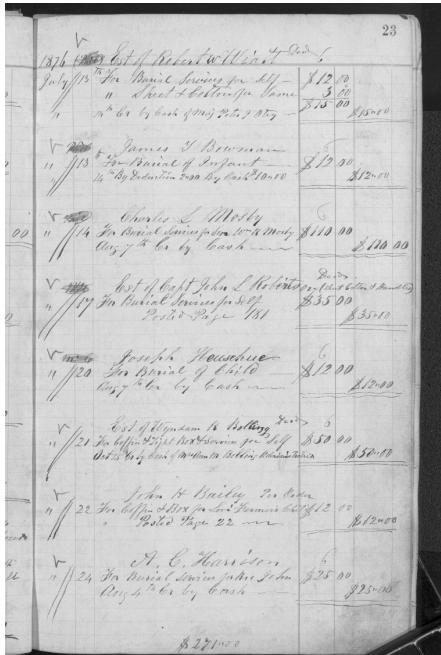 23
1876 Est of Robert W Wiart Decd
July 13th For Burial Services for Self $12 00
" Sheet & Cotton for Same 3 00
$15 00
" Cr by Cash of Maj Peter J Otey $15=00
James T Bowman
" 13 For Burial of Infant $12 00
14th By Deduction 2=00 By Cash $10=00 $12=00
Charles L Mosby
" 14 For Burial Services for son Wm H Mosby $110 00
Aug 7th Cr by Cash $110 00
Est of Capt John L Roberts Decd
" 17 For Burial Services for Self $35 00
Posted Page 181 $35=00
Joseph Heuschue
" 20 For Burial of Child $12 00
Aug 7th Cr by Cash $12=00
Est of Wyndam R Bolling Decd
" 21 For Coffin & Light Box & Services for Self $50 00
Cr by Cash of $50=00
John H Bailey Per Order
" 22 For Coffin & Box for $12 00
" Posted Page 22 $12=00
A. C. Harrison
" 24 For Burial Services for John $25 00
Aug 4th Cr by Cash $25=00
$271=00